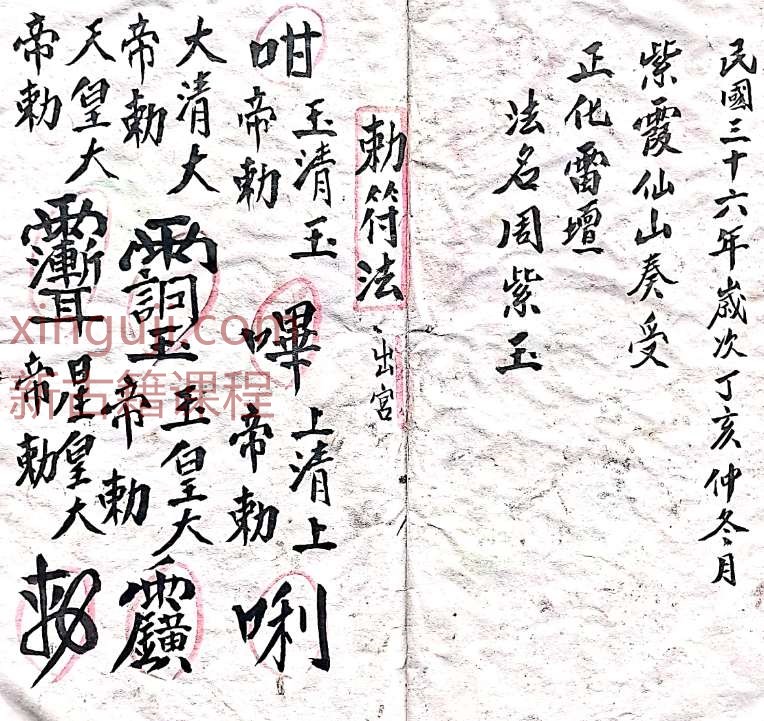 民國三十六年歲次丁亥仲冬月
紫霞仙山奏受
正化雷壇
法名周紫玉
勅符法 出宮
咁 玉清玉帝勅 嗶 上清上帝勅 唎
大清大帝勅 玉皇大帝勅
天皇大帝勅 星皇大帝勅
xinguji.com
新古籍课程